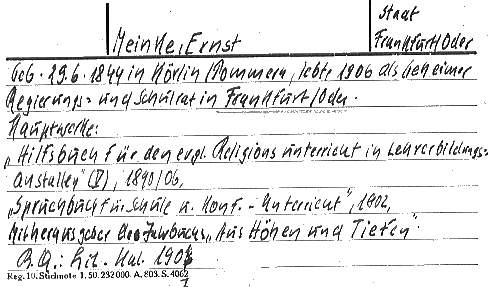 Staat
Meinke, Ernst Frankfurt/Oder
Geb. 29.6.1844 in Körlin/Pommern, lebte 1906 als Geheimer
Regierungs= und Schulrat in Frankfurt/Oder.
Hauptwerke:
„Hilfsbuch für den evgl. Religionsunterricht in Lehrerbildungs=
anstalten" (V), 1890/06,
„Spruchbuch f. Schule u. Konf.-Unterricht", 1902,
Mitherausgeber des Jahrbuchs „Aus Höhen und Tiefen"
B.Q.: Lit. Kal. 190
Reg. 10. Stichnote 1. 50. 232000. A. 803. S. 4062